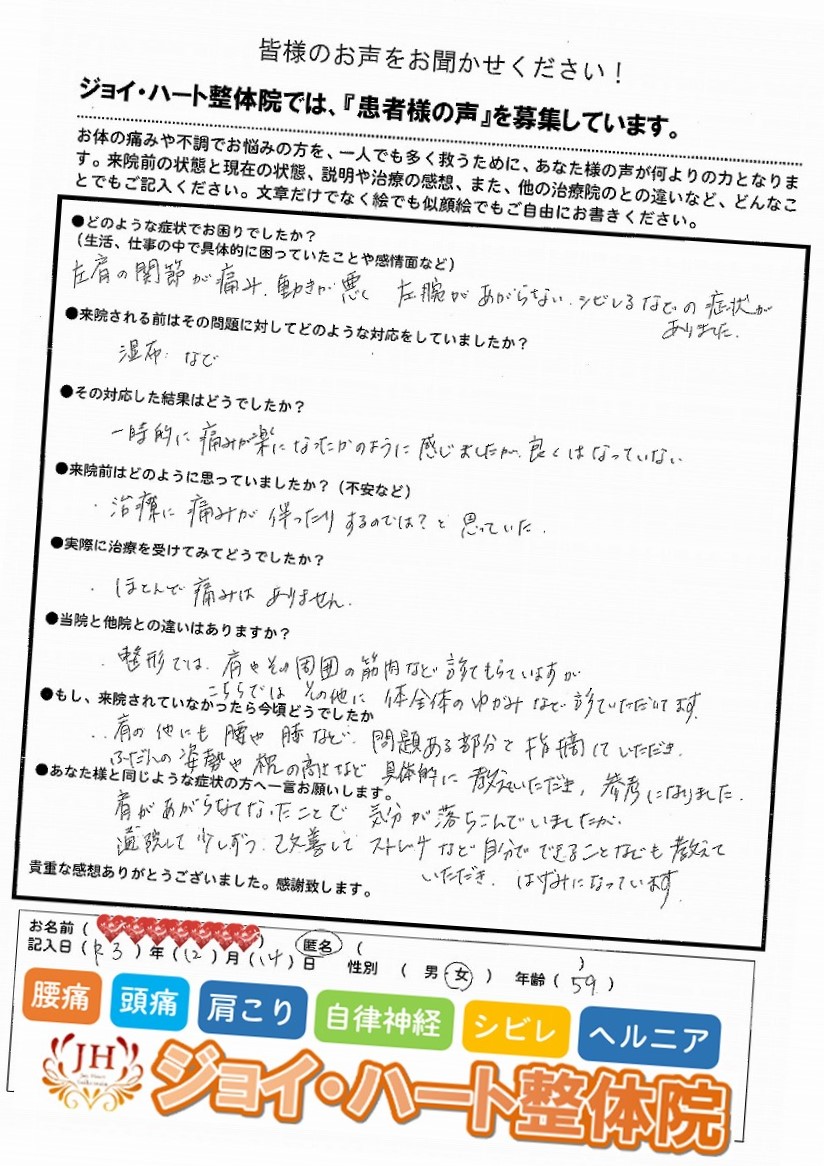 皆様のお声をお聞かせください！
ジョイ・ハート整体院では、『患者様の声』を募集しています。
お体の痛みや不調でお悩みの方を、一人でも多く救うために、あなた様の声が何よりの力となりま
す。来院前の状態と現在の状態、説明や治療の感想、また、他の治療院のとの違いなど、どんなこ
とでもご記入ください。文章だけでなく絵でも似顔絵でもご自由にお書きください。
●どのような症状でお困りでしたか？
（生活、仕事の中で具体的に困っていたことや感情面など）
左肩の関節が痛み、動きが悪く 左腕があがらない、シビレるなどの症状が
ありました。
●来院される前はその問題に対してどのような対応をしていましたか？
湿布 など
●その対応した結果はどうでしたか？
一時的に痛みが楽になったかのように感じましたが、良くはなっていない
●来院前はどのように思っていましたか？（不安など）
・治療に痛みが伴ったりするのでは？と思っていた。
●実際に治療を受けてみてどうでしたか？
・ほとんど痛みはありません。
●当院と他院との違いはありますか？
・整形では、肩やその周囲の筋肉など診てもらっていますが
こちらではその他に体全体のゆがみなど診ていただいてます。
●もし、来院されていなかったら今頃どうでしたか
・肩の他にも腰や膝など、問題ある部分を指摘していただき、
ふだんの姿勢や枕の高さなど具体的に教えていただき、参考になりました。
●あなた様と同じような症状の方へ一言お願いします。
肩があがらなくてなったことで気分が落ちこんでいましたが、
通院して少しずつ改善してストレッチなど自分でできることなども教えて
いただき、はげみになっています。
貴重な感想ありがとうございました。感謝致します。
お名前（ ） 匿名（ ）
記入日（R3）年（12）月（14）日 性別（男・女） 年齢（59）
腰痛 頭痛 肩こり 自律神経 シビレ ヘルニア
JH
ジョイ・ハート整体院